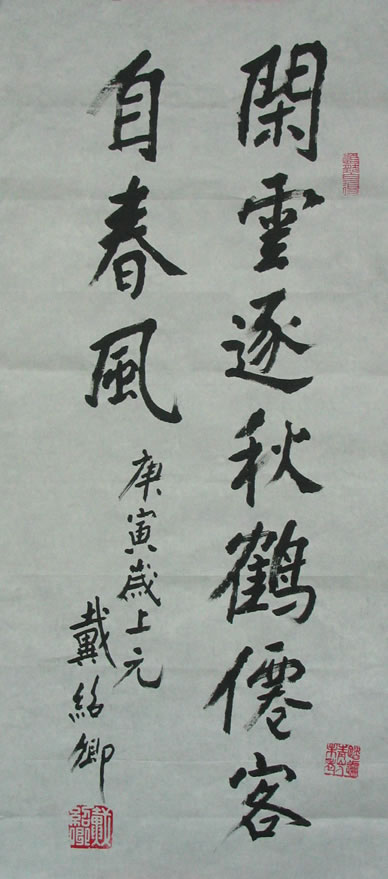 閑雲逐秋鶴僊客
自春風
庚寅歲上元
戴紹卿